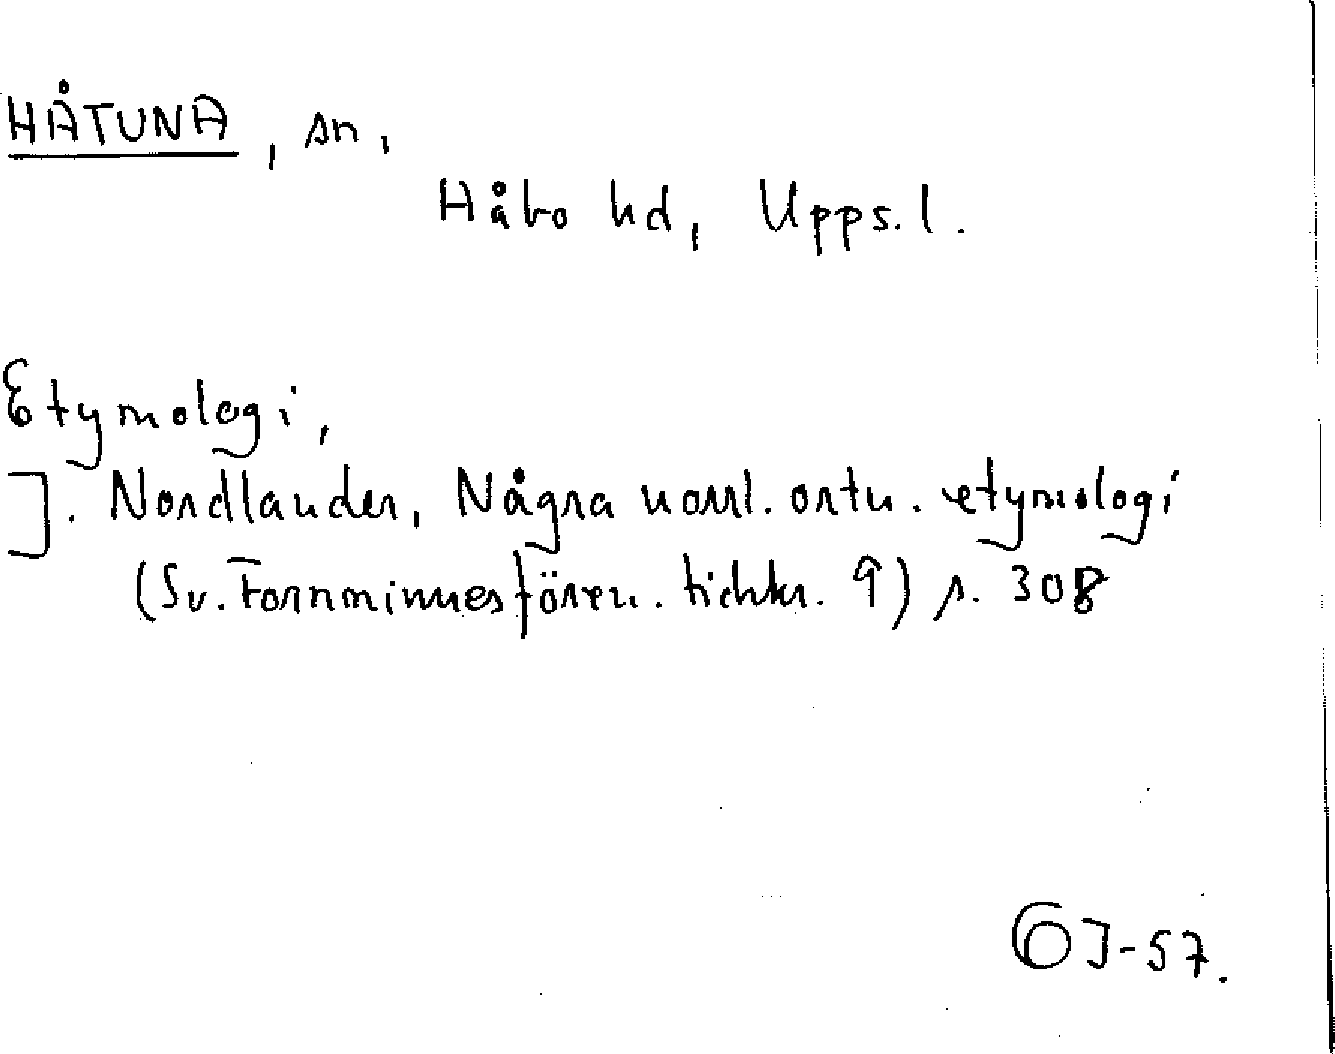 HÅTUNA, sn,
Håbo hd, Upps.l.
Etymologi,
J. Nordlander, Några norrl. ortn. etymologi
(Sv. Fornminnesfören. tidskr. 9) s. 308
GJ-57.